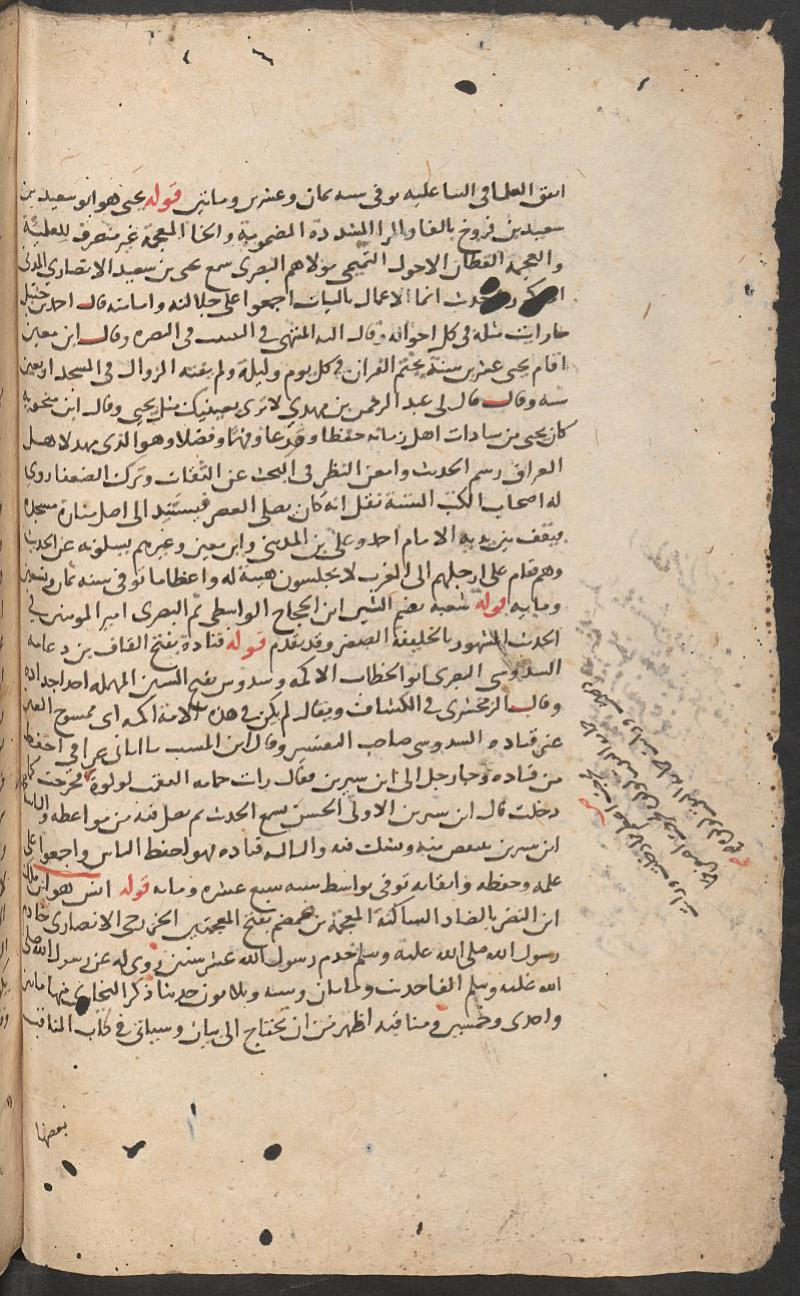 اتفق العلما فى الثنا عليه توفى سنه ثمان وعشرين وماتين قوله يحيى هو ابو سعيد بن
سعيد بن فروخ بالفا والرا المشددة المضمومة والخا المعجمة غير منصرف للعلمية
والعجمة القطان الاحول التميمى مولاهم البصرى سمع يحيى بن سعيد الانصارى المدنى
حدث انما الاعمال بالنيات اجمعوا على جلالته وامامته قال احمد بن حنبل
ما رايت مثله فى كل احواله وقال اليه المنتهى فى التثبت فى البصره وقال ابن معين
اقام يحيى عشرين سنة يختم القران فى كل يوم وليلة ولم يفته الزوال فى المسجد اربعين
سنه وقال قال لى عبد الرحمن بن مهدي لا ترى بعينيك مثل يحيى وقال ابن منجويه
كان يحيى من سادات اهل زمانه حفظا وورعا وفهما وفضلا وهو الذى مهد لاهل
العراق رسم الحديث وامعن النظر فى البحث عن الثقات وترك الضعفا روى
له اصحاب الكتب الستة نقل انه كان يصلى العصر فيستند الى اصل منارة مسجده
فيقف بين يديه الامام احمد وعلى بن المدينى وابن معين وغيرهم يسلونه عن الحديث
وهم قيام على ارجلهم الى المغرب لا يجلسون هيبة له واعظاما توفى سنه ثمان وتسعين
ومايه قوله شعبة بضم الشين ابن الحجاج الواسطى ثم البصرى امير المومنين فى
الحديث المشهور بالخليفة الصغير وقد تقدم قوله قتادة بفتح القاف بن دعامه
السدوسى البصرى ابو الخطاب الاكمه وسدوس بفتح السين المهمله احد اجداده
وقال الزمخشرى فى الكشاف ويقال لم يكن فى هذه الامة اكمه اى ممسوح العين
غير قتاده السدوسى صاحب التفسير وقال ابن المسيب ما اتانى عراقى احفظ
من قتاده وجا رجل الى ابن سيرين فقال رايت حمامه التقمت لولوة فخرجت كما
دخلت قال ابن سيرين الاولى الحسن يسمع الحديث ثم يصل فيه من مواعظه والثانيه
ابن سيرين ينقص منه ويشك فيه والثالثه قتاده فهو احفظ الناس واجمعوا على
علمه وحفظه واتقانه توفى بواسط سنه سبع عشره ومايه قوله انس هو ابن مالك
ابن النضر بالضاد الساكنة المعجمة بن ضمضم بفتح المعجمتين الخزرجى الانصارى خادم
رسول الله صلى الله عليه وسلم خدم رسول الله عشر سنين روى له عن رسول الله صلى
الله عليه وسلم الفا حديث ومايتان وسته وثلاثون حديثا ذكر البخارى منها مايتين
واحدى وخمسين ومناقبه اظهر من ان تحتاج الى بيان وسياتى فى كتاب المناقب
بعضها